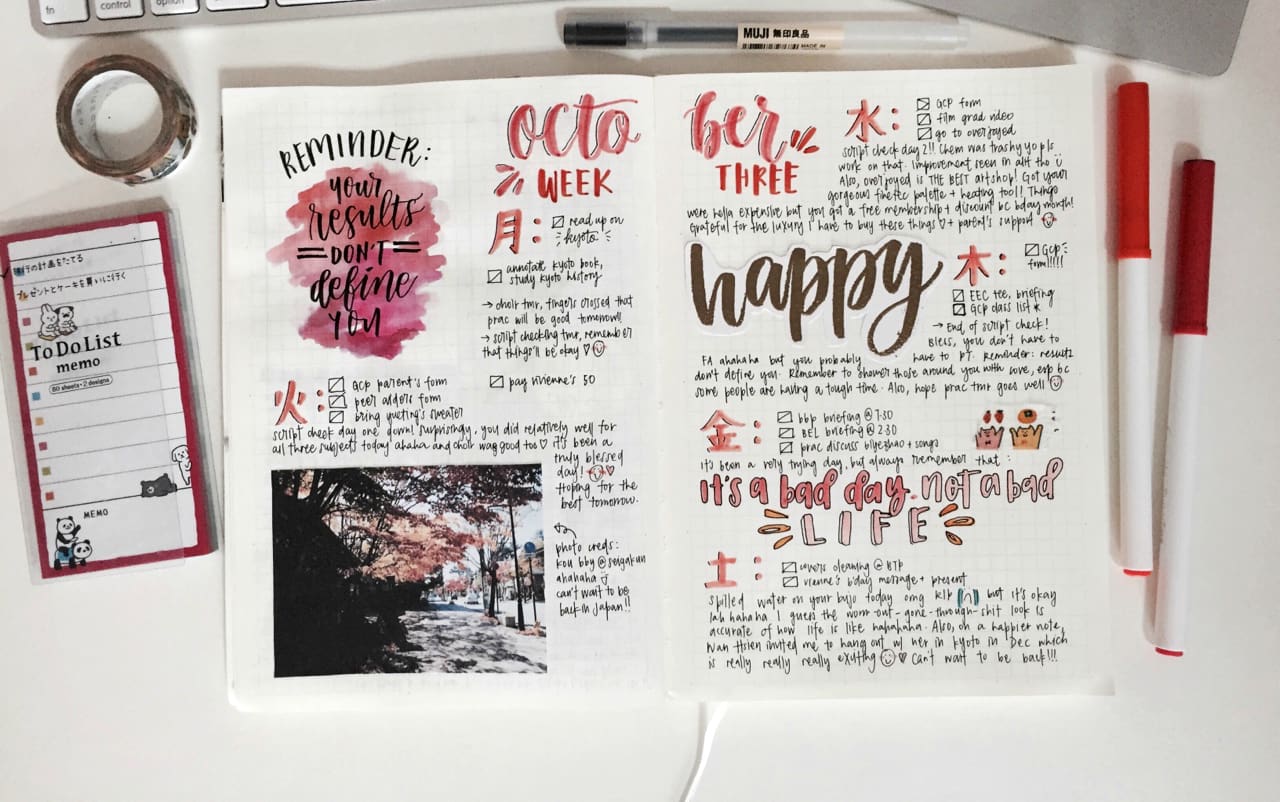 fn
control
option
MUJI 無印良品
MADE IN
行の計画をたてる
プレゼントとケーキを買いに行く
To Do List
memo
60 sheets・2 designs
MEMO
REMINDER:
your
results
=DON'T=
define
you
octo
WEEK
月:
read up on
kyoto
annotate kyoto book,
study kyoto history
→ choir tmr, fingers crossed that
prac will be good tomorrow!!
→ script checking tmr, remember
that things'll be okay ♡
pay vivienne's 50
火:
GCP parent's form
peer adders form
bring yueting's sweater
script check day one down! surprisingly, you did relatively well for
all three subjects today ahaha and choir was good too ♡ it's been a
truly blessed
day!
Hoping for the
best tomorrow.
photo creds:
kou bby @seigakun
ahahaha
can't want to be
back in Japan!!
ber
THREE
水:
GCP form
film grad video
go to overjoyed
script check day 2!! Chem was trashy yo pls
work on that. Improvement seen in alit tho
Also, overjoyed is THE BEST artshop! Got your
gorgeous finetec palette + heating tool! Things
were hella expensive but you got a free membership + discount bc bday month!
Grateful for the luxury I have to buy these things ♡ + parent's support
happy
木:
GCP
form!!!!!
EEC tee, briefing
GCP class list *
→ End of script check!
Bless, you don't have to
FA ahahaha but you probably have to PT. Reminder: results
don't define you. Remember to shower those around you with love, esp bc
some people are having a tough time. Also, hope prac tmr goes well
金:
bbp briefing @ 7:30
BEL briefing @ 2:30
prac discuss biyezhao + songs
it's been a very trying day, but always remember that:
it's a bad day, not a bad
LIFE
土:
covers cleaning @ BTP
vienne's b'day message + present
spilled water on your bujo today omg RIP but it's okay
lah hahaha I guess the worn-out-gone-through-shit look is
accurate of how life is like hahahaha. Also, on a happier note,
Wan Hsien invited me to hang out w/ her in kyoto in Dec which
is really really really exciting ♥ Can't wait to be back!!!